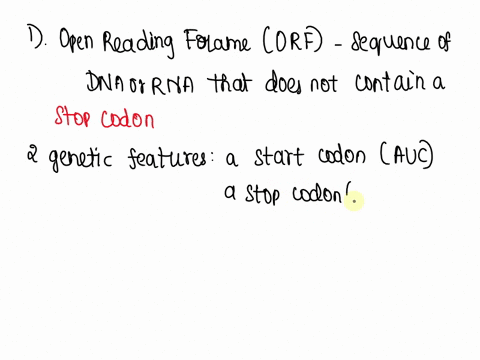 1). Open Reading Forame (ORF) - sequence of
DNA or RNA that does not contain a
stop codon
2 genetic features: a start codon (AUC)
a stop codon(